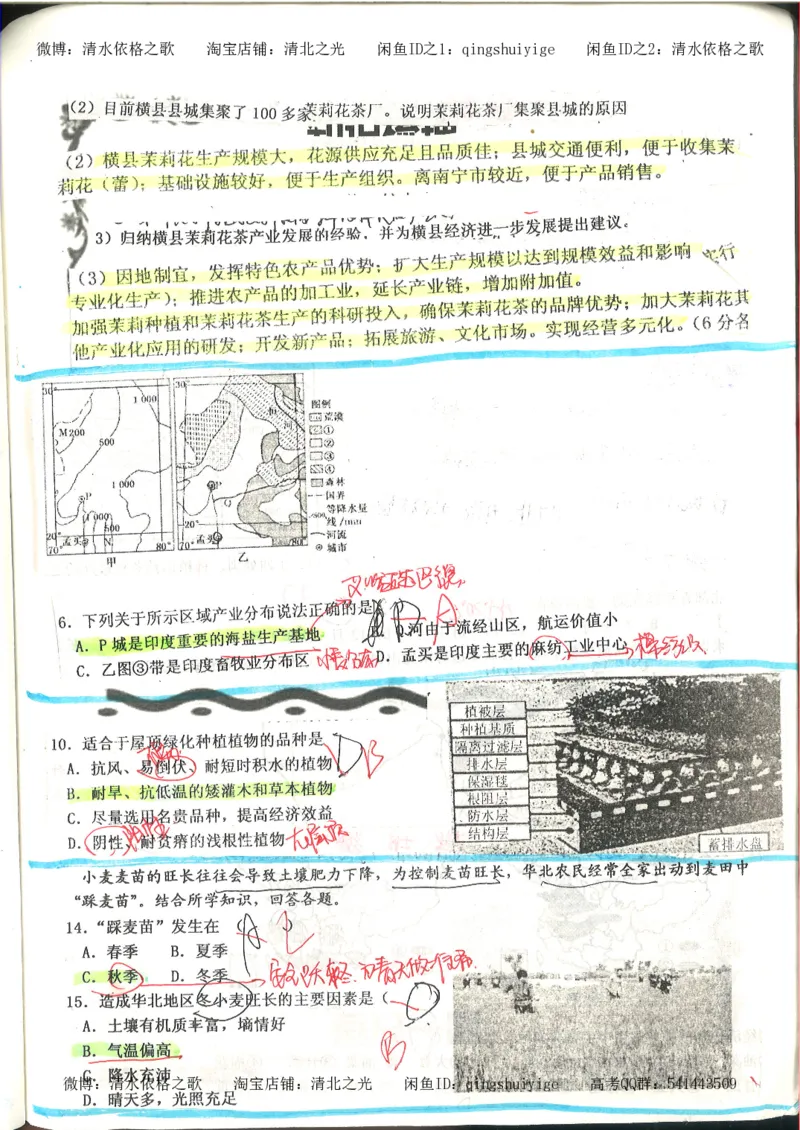 微博：清水依格之歌 淘宝店铺：清北之光 闲鱼ID之1：qingshuiyige 闲鱼ID之2：清水依格之歌
（2）目前横县县城集聚了 100 多家茉莉花茶厂。说明茉莉花茶厂集聚县城的原因
（2）横县茉莉花生产规模大，花源供应充足且品质佳；县城交通便利，便于收集茉
莉花（蕾）；基础设施较好，便于生产组织。离南宁市较近，便于产品销售。
3）归纳横县茉莉花茶产业发展的经验，并为横县经济进一步发展提出建议。
（3）因地制宜，发挥特色农产品优势；扩大生产规模以达到规模效益和影响
专业化生产）；推进农产品的加工业，延长产业链，增加附加值。
加强茉莉种植和茉莉花茶生产的科研投入，确保茉莉花茶的品牌优势；加大茉莉花其
他产业化应用的研发；开发新产品；拓展旅游、文化市场。实现经营多元化。（6 分各
30° 1 000 M200 500 1 000 P 1 000 500 20° 孟买 N 70° 80° 甲
30° 河 P Q 20° 孟买 70° 80° 乙
图例
荒漠
①
②
③
④
森林
国界
500 等降水量
线/mm
河流
城市
6．下列关于所示区域产业分布说法正确的是
A．P 城是印度重要的海盐生产基地 B.河由于流经山区，航运价值小
A
C．乙图③带是印度畜牧业分布区 D．孟买是印度主要的麻纺工业中心
棉纺织
10．适合于屋顶绿化种植植物的品种是
D B
A．抗风、易倒伏、耐短时积水的植物
B．耐旱、抗低温的矮灌木和草本植物
C．尽量选用名贵品种，提高经济效益
D．阴性、耐贫瘠的浅根性植物
植被层
种植基质
隔离过滤层
排水层
保湿毯
根阻层
防水层
结构层
蓄排水盘
小麦麦苗的旺长往往会导致土壤肥力下降，为控制麦苗旺长，华北农民经常全家出动到麦田中
“踩麦苗”。结合所学知识，回答各题。
14．“踩麦苗”发生在（A
C
A．春季 B．夏季
C．秋季 D．冬季
15．造成华北地区冬小麦旺长的主要因素是（
B
A．土壤有机质丰富，墒情好
B．气温偏高
C．降水充沛
微博：清水依格之歌 淘宝店铺：清北之光 闲鱼ID：qingshuiyige 高考QQ群：541443509
D．晴天多，光照充足